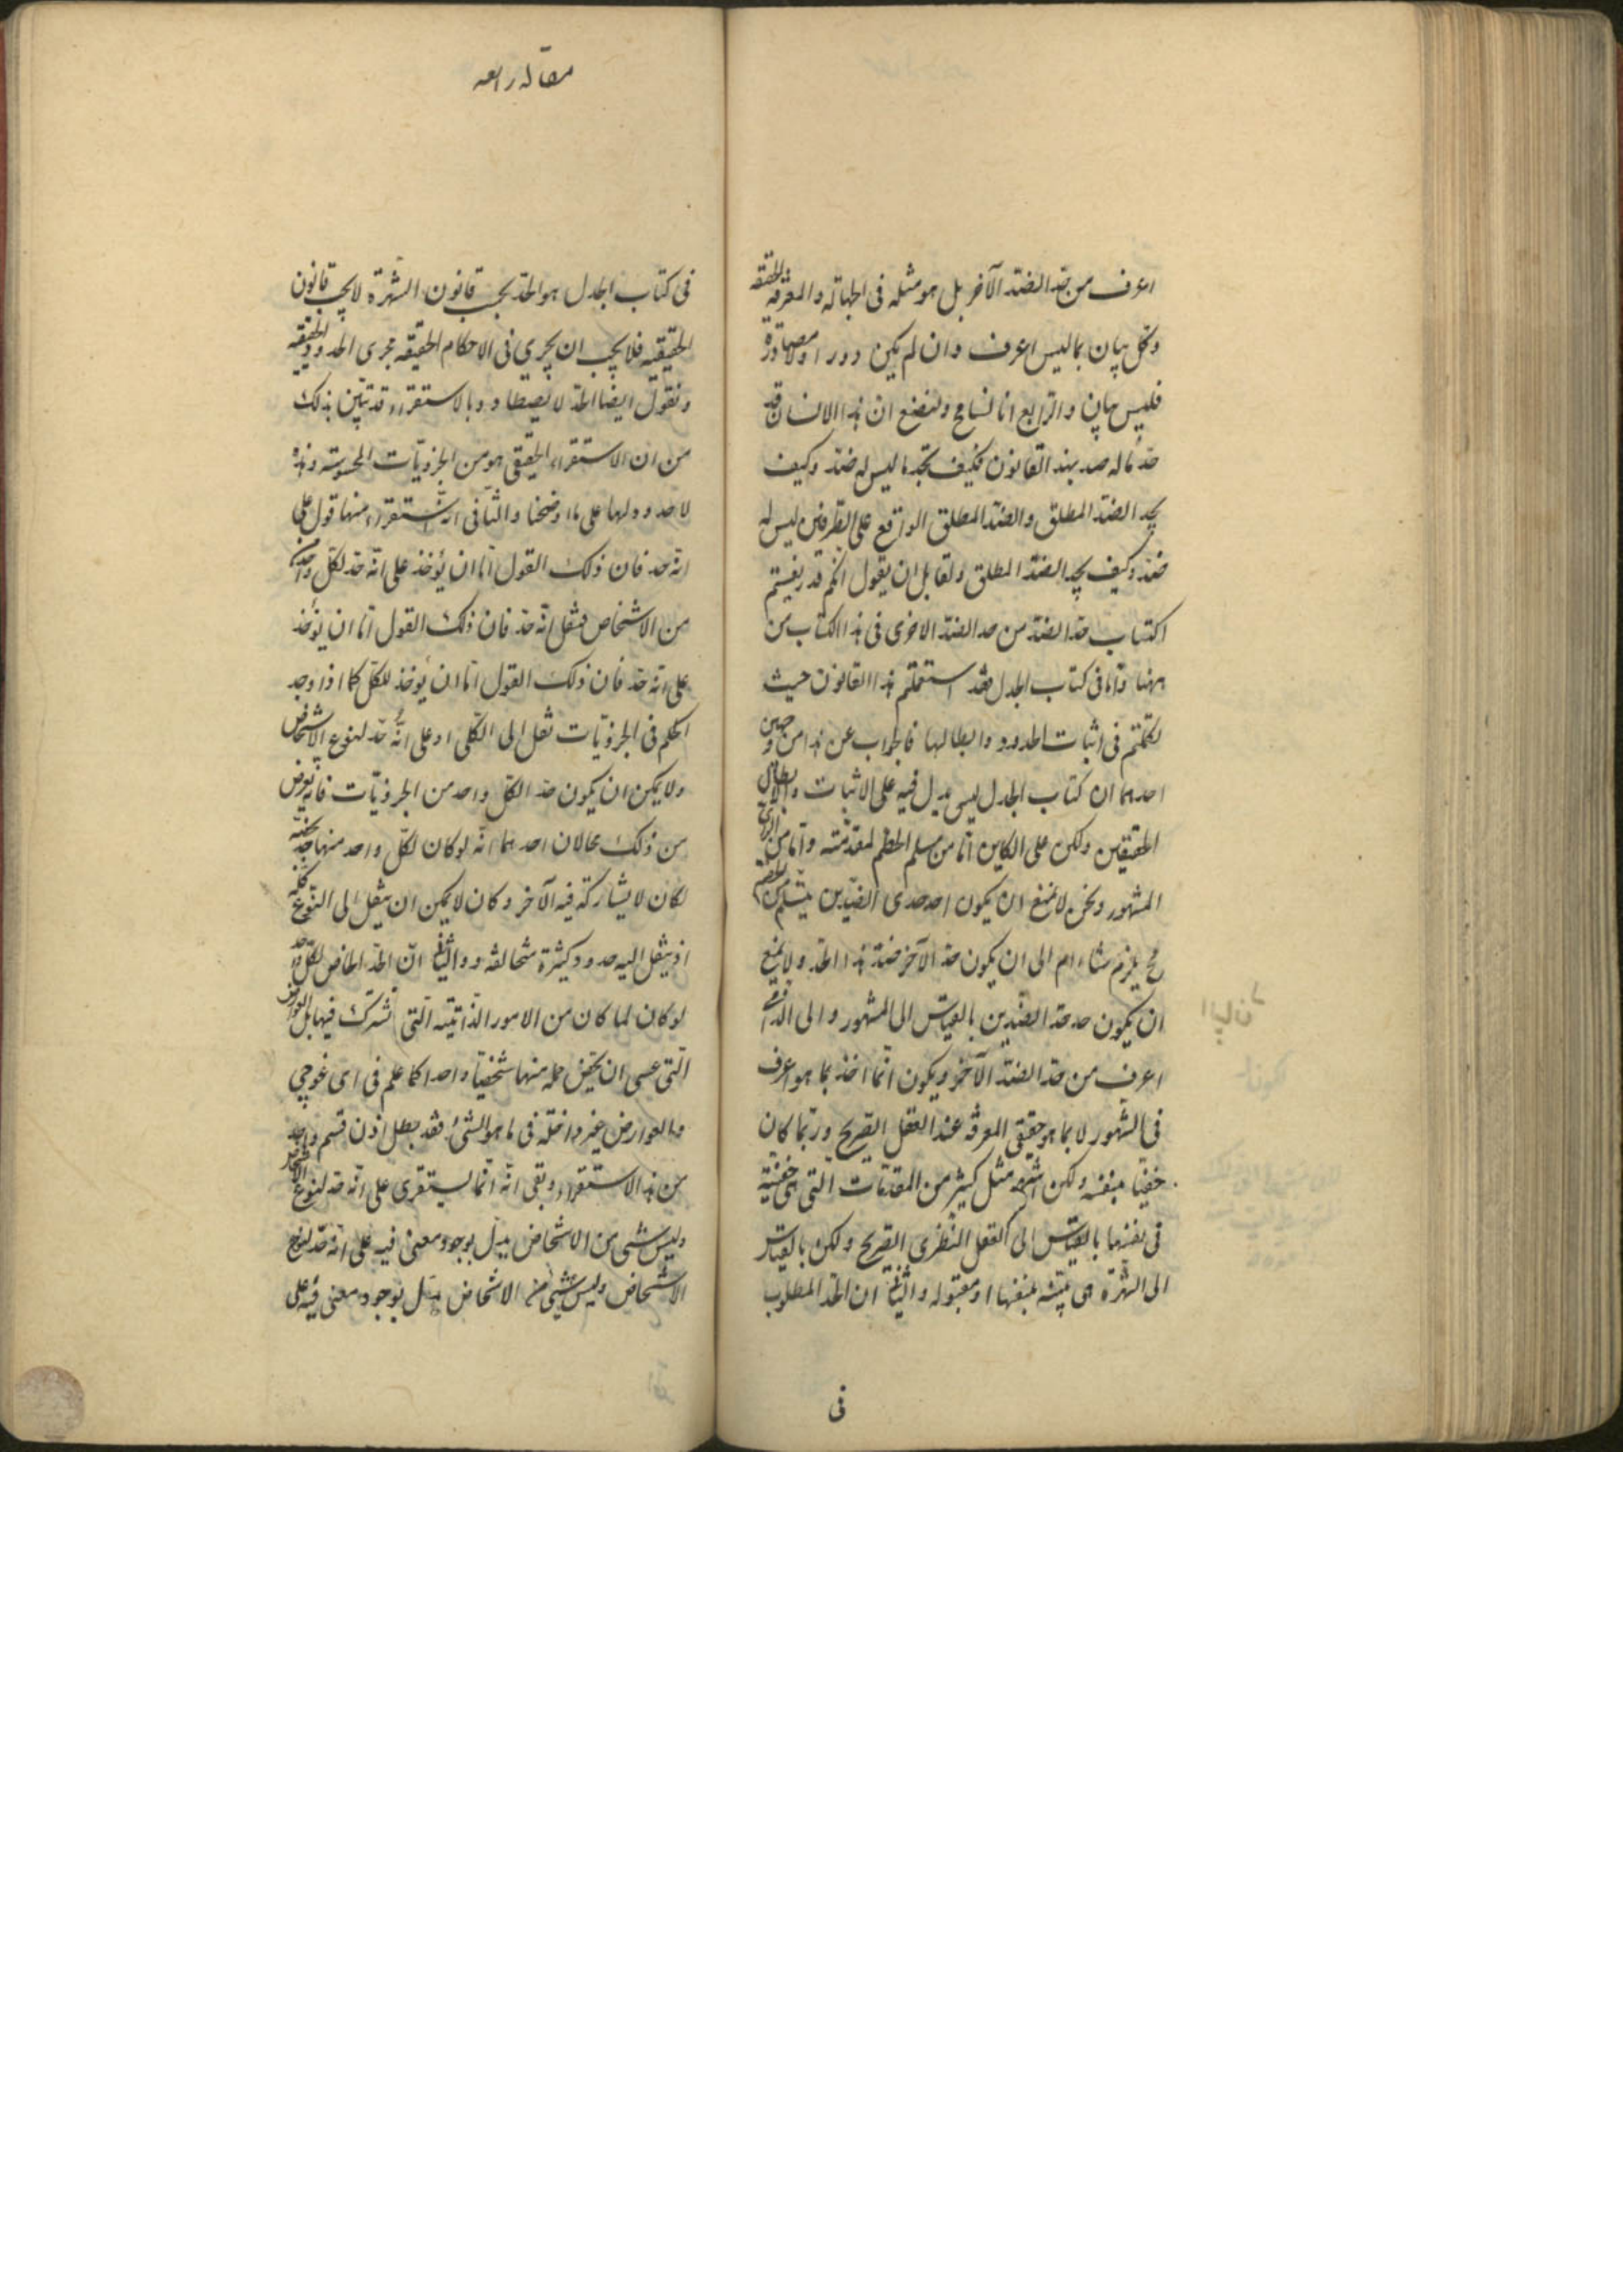 اعرف من حد الضد الآخر بل هو مثله فى الجهالة والمعرفة الحقيقية
وكل بيان بما ليس اعرف وان لم يكن دورا ولا مصادرة
فليس ببيان والرابع انا لنسامح ولنضع ان هذا الانسان قد
حد ما له ضد بهذا القانون فكيف تجد ما ليس له ضد وكيف
يحد الضد المطلق والضد المطلق الواقع على الطرفين ليس له
ضد وكيف يحد الضد المطلق ولقايل ان يقول انكم قد ريفيتم
اكتساب حد الضد من حد الضد الاخرى فى هذا الكتاب من
ههنا واما فى كتاب الجدل فقد استعملتم هذا القانون حيث
تكلمتم فى اثبات الحدود وابطالها فالجواب عن هذا من وجهين
احدهما ان كتاب الجدل ليس يدل فيه على الاثبات والابطال
الحقيقين ولكن على الكاين اما من مسلم الخصم لمقدمته واما من الراى
المشهور ونحن لا نمنع ان يكون احد حدى الضدين يتسلم من الخصم
مح يلزم شاء ام ابى ان يكون حد الآخر ضد هذا الحد ولا يمنع
ان يكون حد حد الضدين بالقياس الى المشهور والى الراى
اعرف من حد الضد الآخر ويكون انما اخذ بما هو اعرف
فى المشهور لا بما هو حقيقى المعرفة عند العقل الصريح وربما كان
خفيا بنفسه ولكن اشهر مثل كثير من المقدمات التى هى خفية
فى نفسها بالقياس الى العقل النظرى الصريح ولكن بالقياس
الى الشهرة هى بينة بنفسها او مقبوله والثانى ان الحد المطلوب
فى
مقاله رابعه
فى كتاب الجدل هو الحد بحسب قانون الشهرة لا بحسب قانون
الحقيقيه فلا يجب ان يجرى فى الاحكام الحقيقيه مجرى الحدود الحقيقيه
ونقول ايضا الحد لا يصطاد وبالاستقراء قد تبين بذلك
من ان الاستقراء الحقيقى هو من الجزويات المحسوسة وهذه
لا حدود لها على ما اوضحنا والثانى انه استقراء منها قول على
انه حد فان ذلك القول اما ان يؤخذ على انه حد لكل واحد
من الاشخاص فنقل انه حد فان ذلك القول اما ان يؤخذ
على انه حد فان ذلك القول اما ان يؤخذ للكل كما اذا وجد
الحكم فى الجزويات نقل الى الكلى او على انه حد لنوع الاشخاص
ولا يمكن ان يكون حد الكل واحد من الجزويات فانه يعرض
من ذلك محالان احدهما انه لو كان لكل واحد منها حد يخصه
لكان لا يشاركه فيه الآخر وكان لا يمكن ان ينقل الى النوع كله
اذ ينقل اليه حدود كثيرة متخالفه ووالثانى ان الحد الخاص لكل واحد
لو كان لما كان من الامور الذاتيه التى تشترك فيها بل العوارض
التى عسى ان يخص جملة منها شخصيا واحدا كما علم فى ايساغوجى
والعوارض غير داخله فى ما هو الشئ فقد بطل اذن قسم واحد
من هذا الاستقراء وبقى انه انما يستقرى على انه حد لنوع الاشخاص
وليس شئ من الاشخاص يدل بوجود معنى فيه على انه حد لنوع
الاشخاص وليس شئ من الاشخاص يدل بوجود معنى فيه على